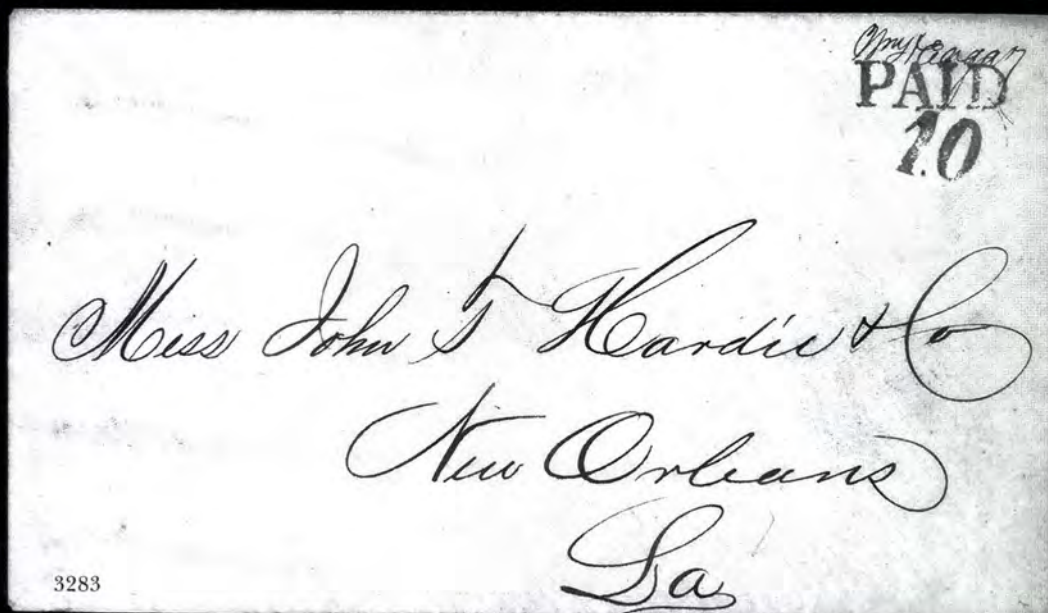 PAID
10
Miss John T Hardie & Co
New Orleans
La
3283